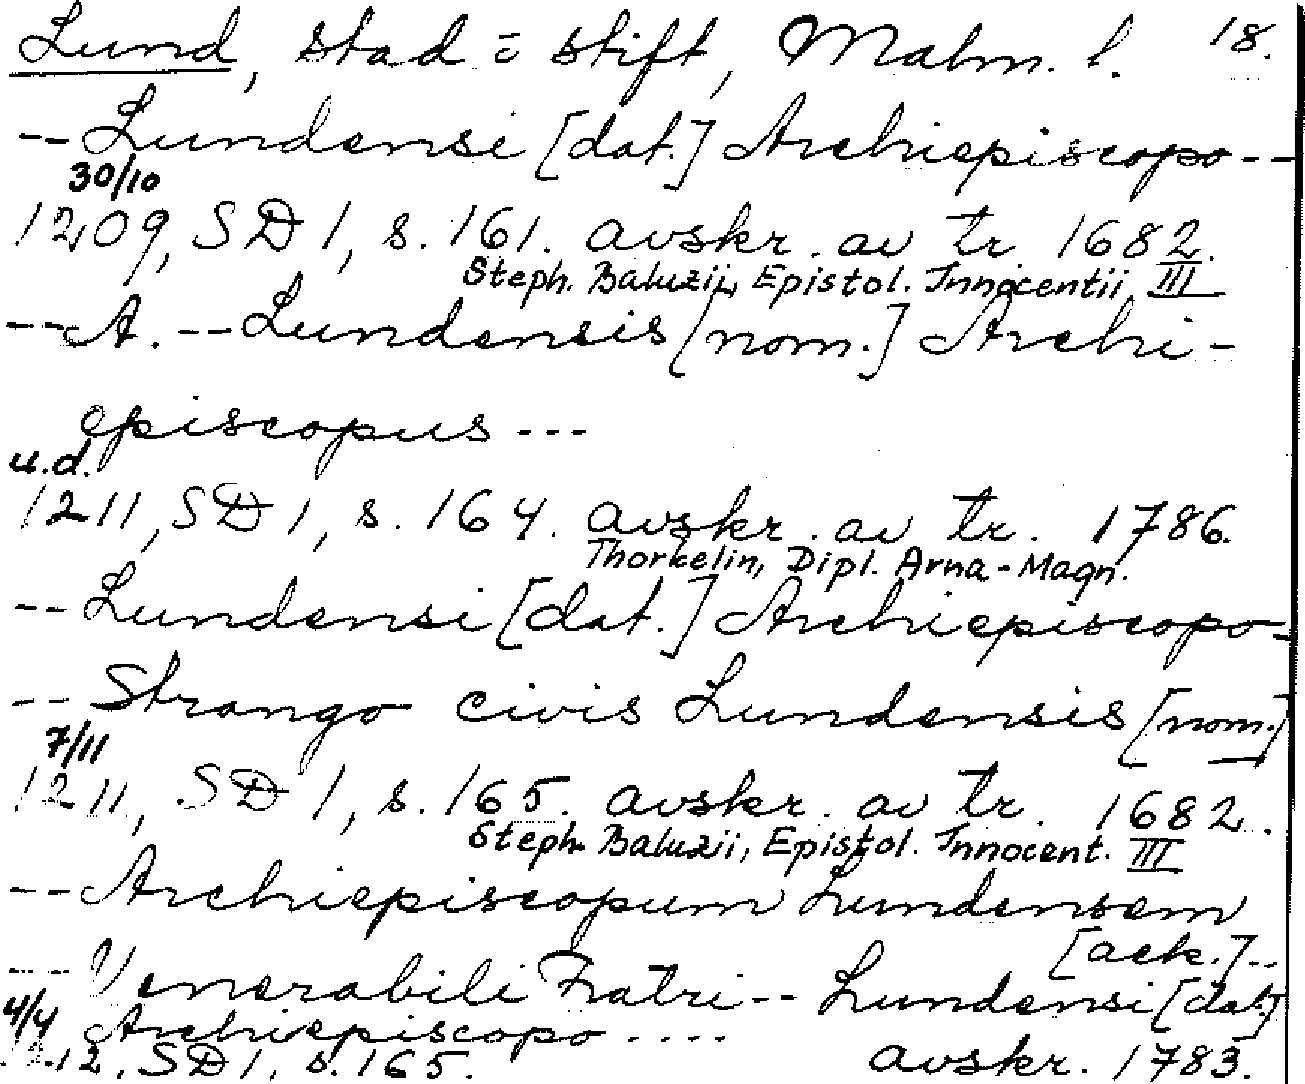 Lund, stad o stift, Malm. l. 18.
-- Lundensi [dat.] Archiepiscopo --
30/10
1209, SD 1, s. 161. avskr. av tr 1682.
Steph. Baluzii, Epistol. Innocentii III
-- A. -- Lundensis [nom.] Archi-
episcopus ---
u.d.
1211, SD 1, s. 164. avskr. av tr. 1786.
Thorkelin, Dipl. Arna-Magn.
-- Lundensi [dat.] Archiepiscopo -
-- Strango civis Lundensis [nom.]
7/11
1211, SD 1, s. 165. avskr. av tr. 1682.
Steph. Baluzii, Epistol. Innocent. III
-- Archiepiscopum Lundensem
[ack.] --
--- Venerabili Fratri -- Lundensi [dat.]
4/4 Archiepiscopo ----
1212, SD 1, s. 165. avskr. 1783.